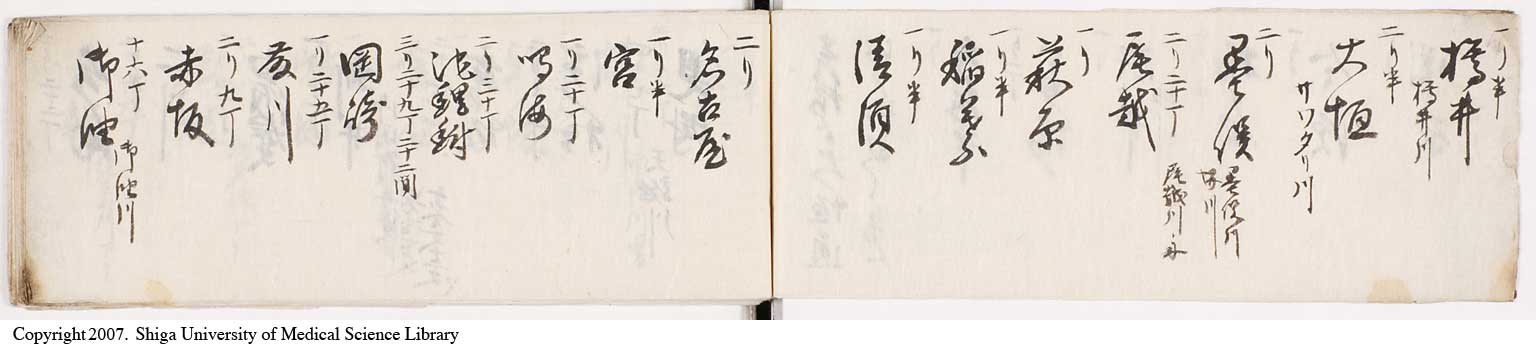 一リ半
樽井
樽井川
二リ半
大垣
サワタリ川
二リ
墨俣
墨俣川
堺川
二リ二十丁
尾越
尾越川
一リ
萩原
一リ半
稲葉
一リ半
清須
二リ
名古屋
一リ半
宮
一リ二十丁
鳴海
二リ三十丁
池鯉鮒
三リ二十九丁二十二間
岡崎
一リ二十五丁
藤川
二リ九丁
赤坂
十六丁
御油
御油川
Copyright 2007. Shiga University of Medical Science Library